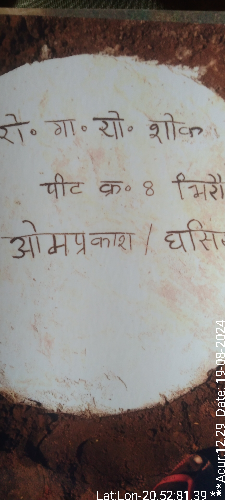 रो॰ गा॰ यो॰ शोक
पीट क्र॰ 8 भिरौ
ओमप्रकाश / घसि
Lat:Lon-20.52:81.39 ***Acur:12.29 Date: 19-08-2024